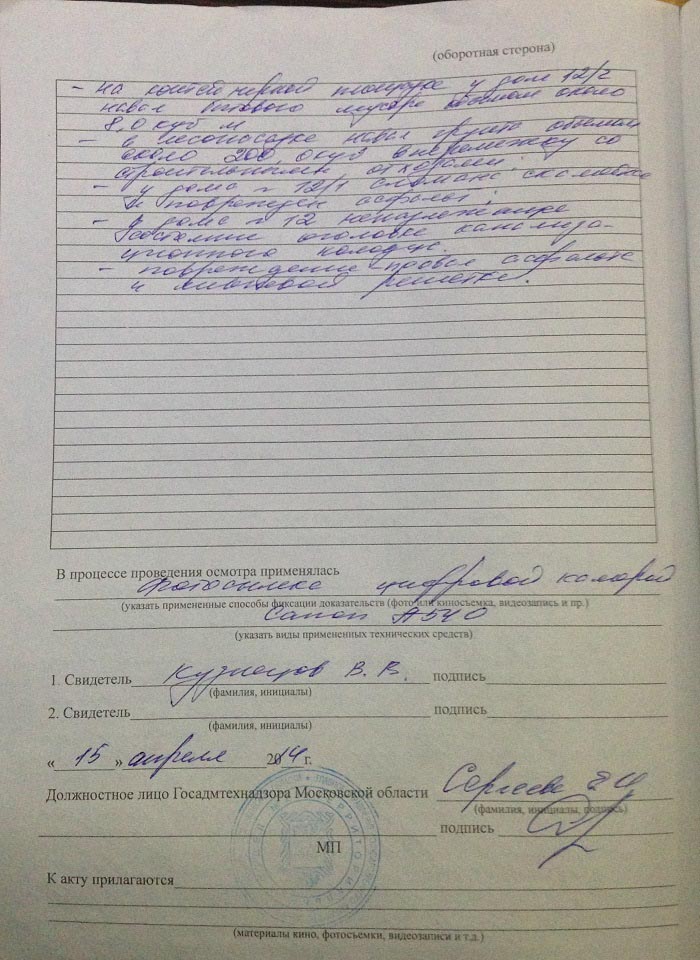 (оборотная сторона)
- на контейнерной площадке у дом 12/2
навал бытового мусора объемом около
8,0 куб м
- в лесопосадке навал грунта объемом
около 200,0 куб вперемежку со
строительными отходами.
- у дома № 12/1 сломана скамейка
и поврежден асфальт;
- у дома № 12 ненадлежащее
состояние оголовка канализа-
ционного колодца.
- повреждение асфальта
и ливневой решетки.
В процессе проведения осмотра применялась
фотосъемка цифровой камерой
(указать примененные способы фиксации доказательств (фото или киносъемка, видеозапись и пр.)
Canon A540
(указать виды примененных технических средств)
1. Свидетель Кузнецов В. В. подпись
(фамилия, инициалы)
2. Свидетель подпись
(фамилия, инициалы)
« 15 » апреля 2014 г.
Должностное лицо Госадмтехнадзора Московской области Сергеева
(фамилия, инициалы, подпись)
подпись
МП
К акту прилагаются
(материалы кино, фотосъемки, видеозаписи и т.д.)